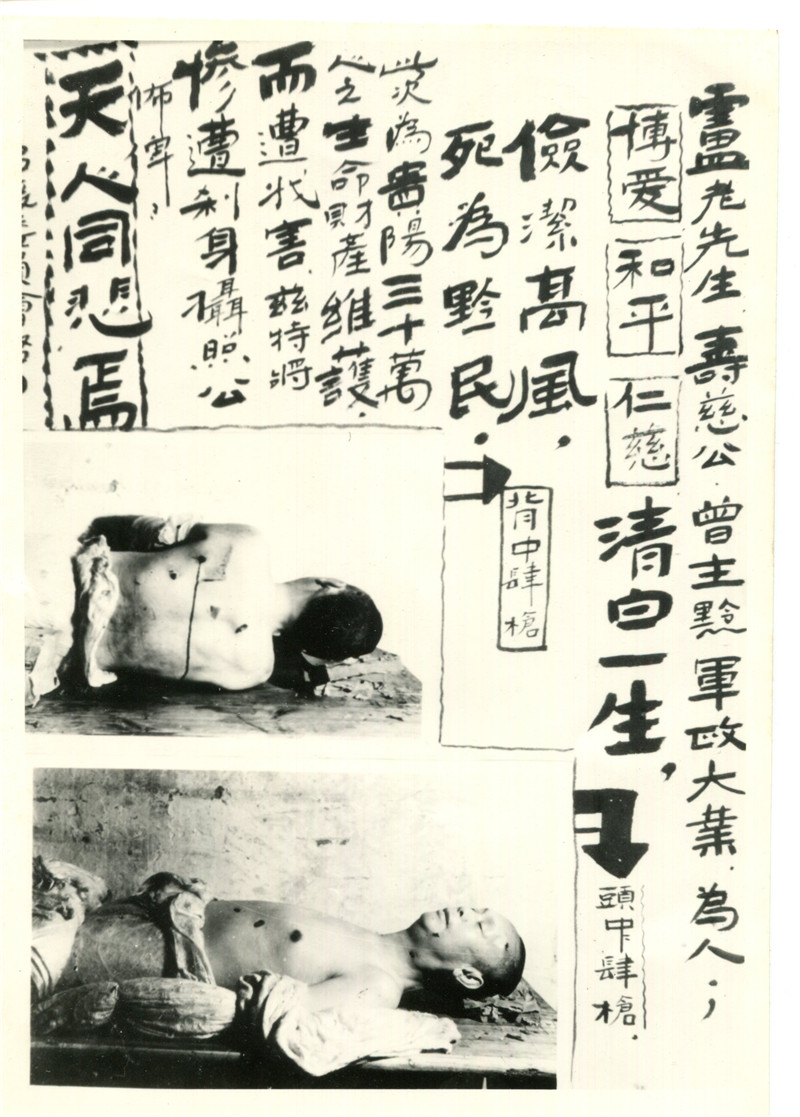 盧老先生壽慈公.曾主黔軍政大業.為人;
博爱 和平 仁慈 清白一生,
頭中肆槍.
儉潔髙風,
死為黔民.
背中肆槍
此次為貴陽三十萬
人之生命財產維護.
而遭戕害.兹特將
惨遭刹身攝照公
佈
天人同悲焉